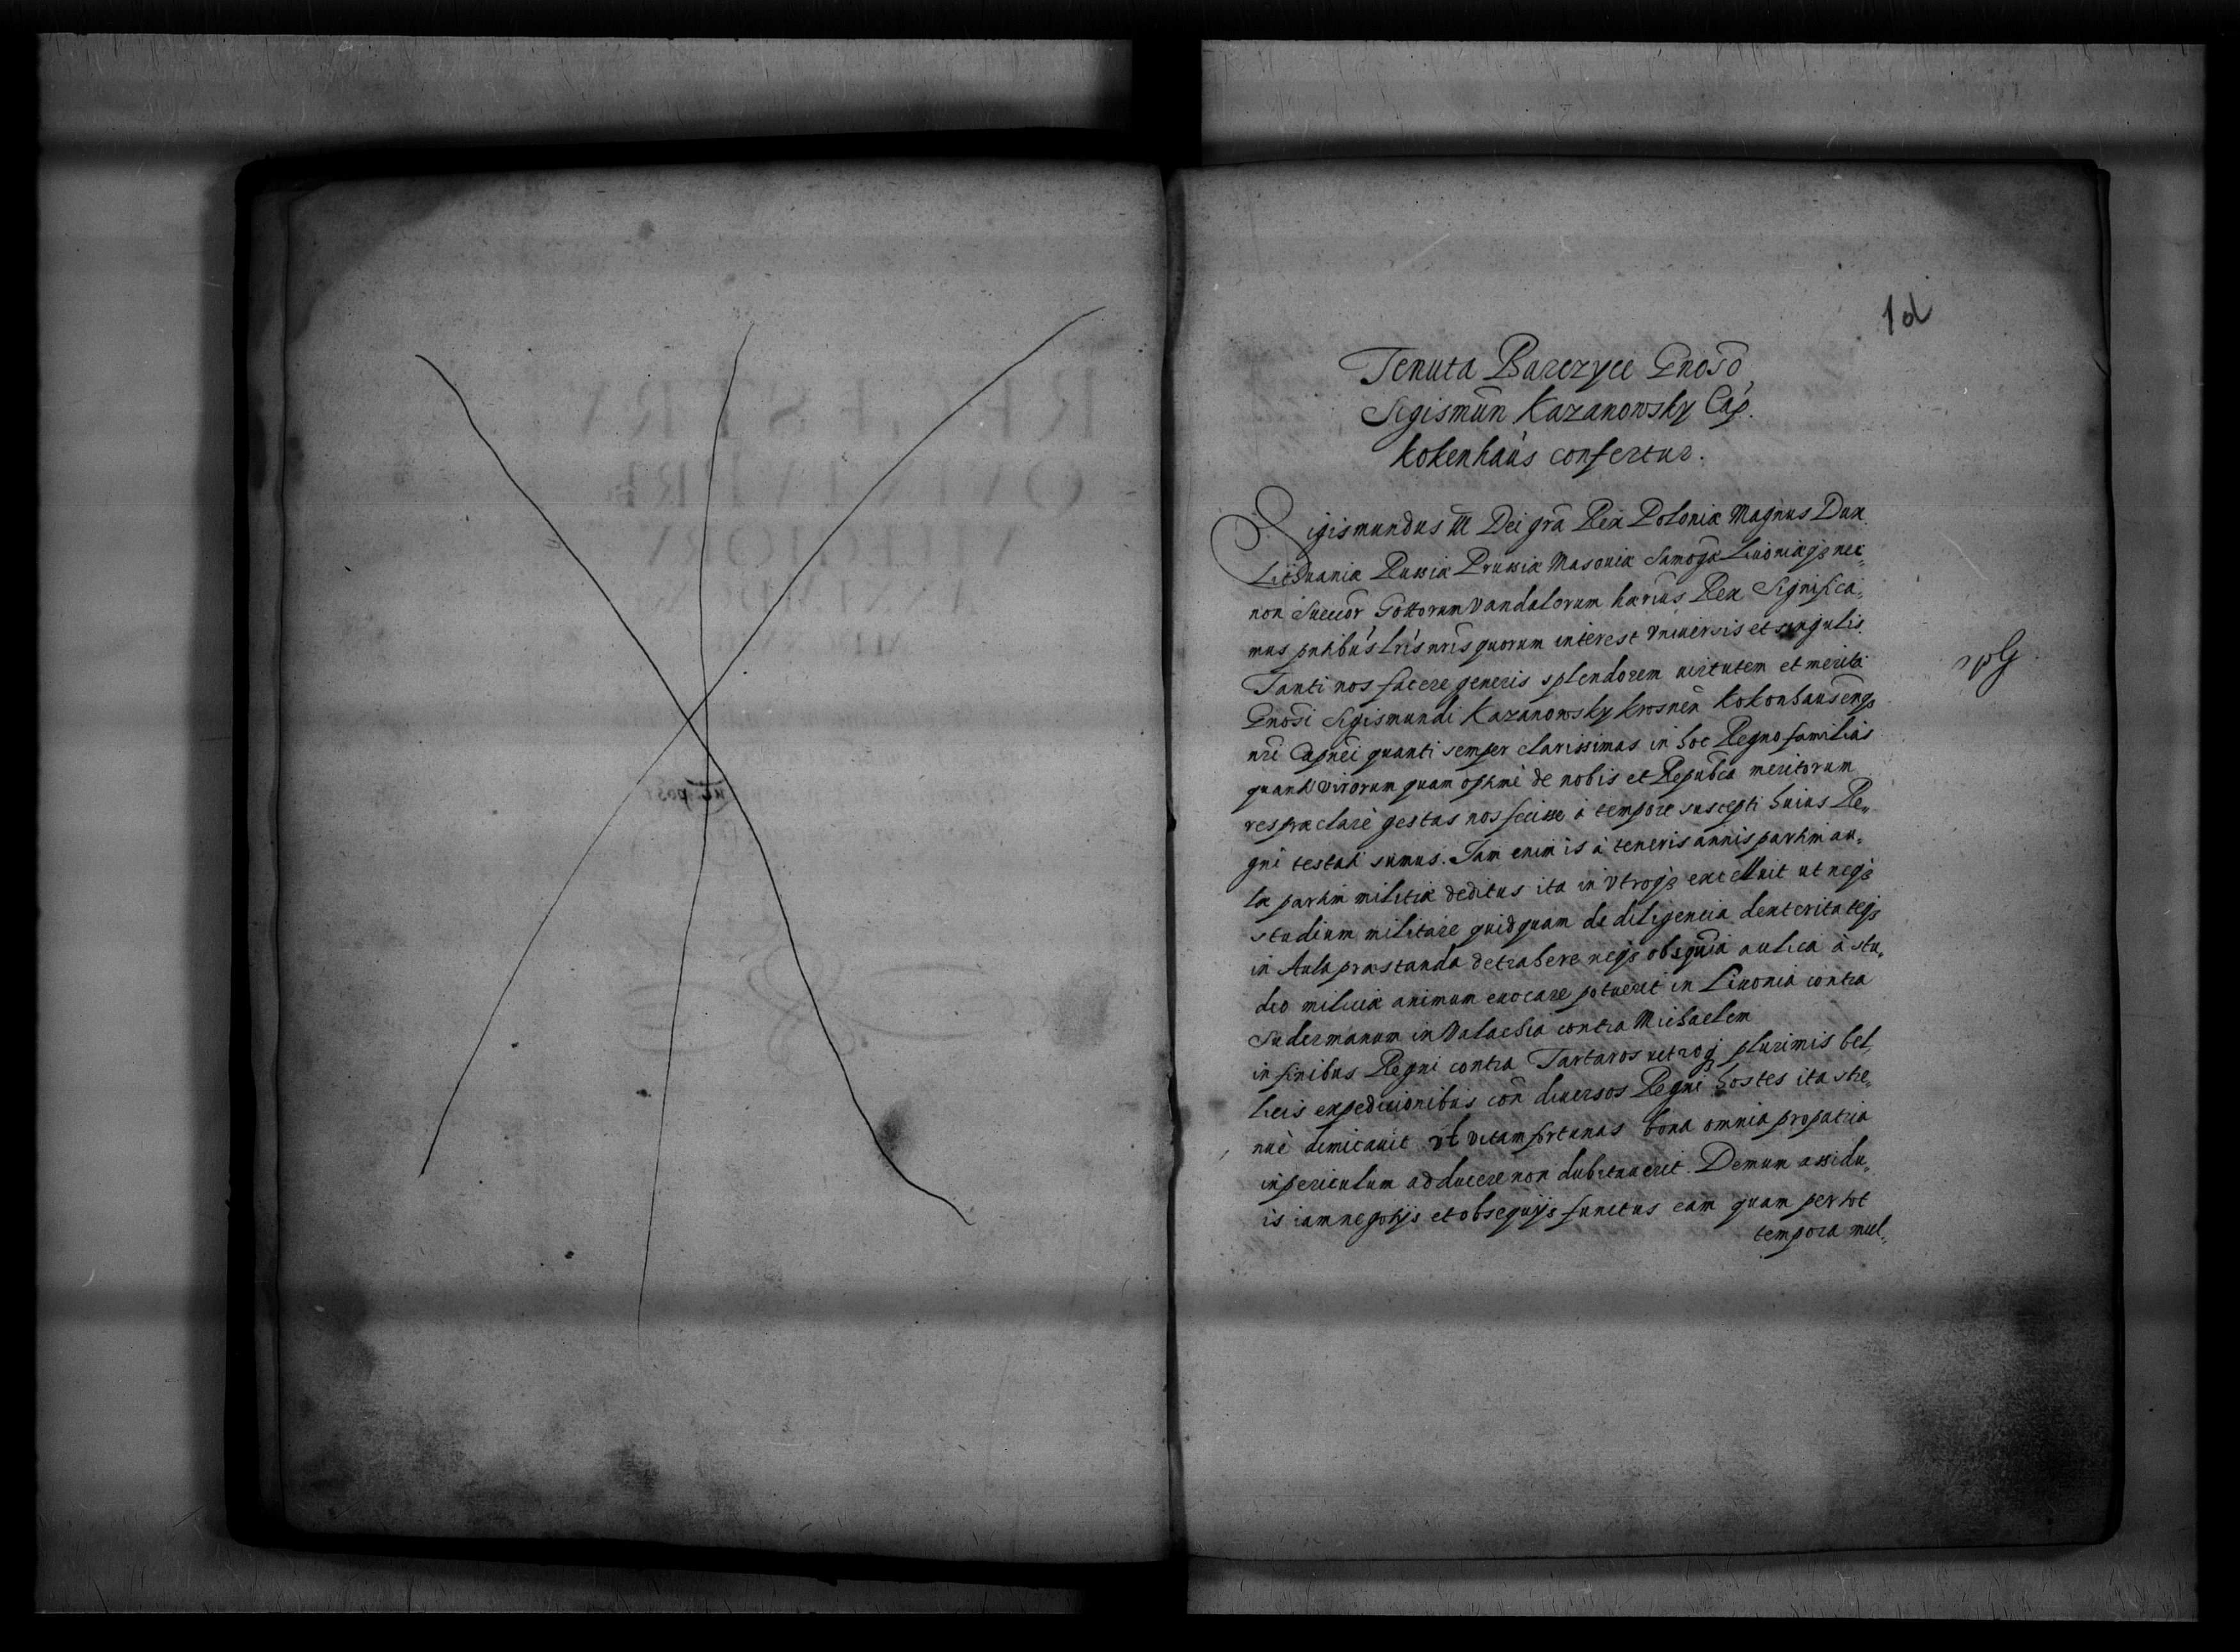 1d
Tenuta Barczyce Gnoso
Sigismun Kazanowsky Cap.
Kokenhaus confertur.
Sigismundus III Dei gra Rex Poloniæ Magnus Dux
Lithuaniæ Russiæ Prussiæ Masouiæ Samogæ Liuoniæq nec
non Sueccor Gottorum Vandalorum hærius Rex Significa,,
mus pntibus lris nris quorum interest vniuersis et singulis
Tanti nos facere generis splendorem uirtutem et merita
Gnosi Sigismundi Kazanowsky Krosnen Kokonhausenq
nri Capnei quanti semper clarissimas in hoc Regno familias
quanti virorum quam optime de nobis et Repubca meritorum
res præclare gestas nos fecisse à tempore suscepti huius Re,,
gni testati sumus. Jam enim is à teneris annis partim au,,
læ partim militiæ deditus ita in vtroq excelluit ut neq
studium militare quidquam de diligencia dexteritateq
in Aula præstanda detrahere neq obsequia aulica à stu,,
dio miliciæ animum euocare potuerit in Liuonia contra
Sudermanum in Valachia contra Michaelem
in finibus Regni contra Tartaros plurimis bel,,
licis expedicionibus con diuersos Regni hostes ita stre,,
nuè dimicauit vt vitam fortunas bona omnia pro patria
in periculum adducere non dubitauerit. Demum assidu,,
is iam negotijs et obsequijs functus eam quam per tot
tempora mul,,